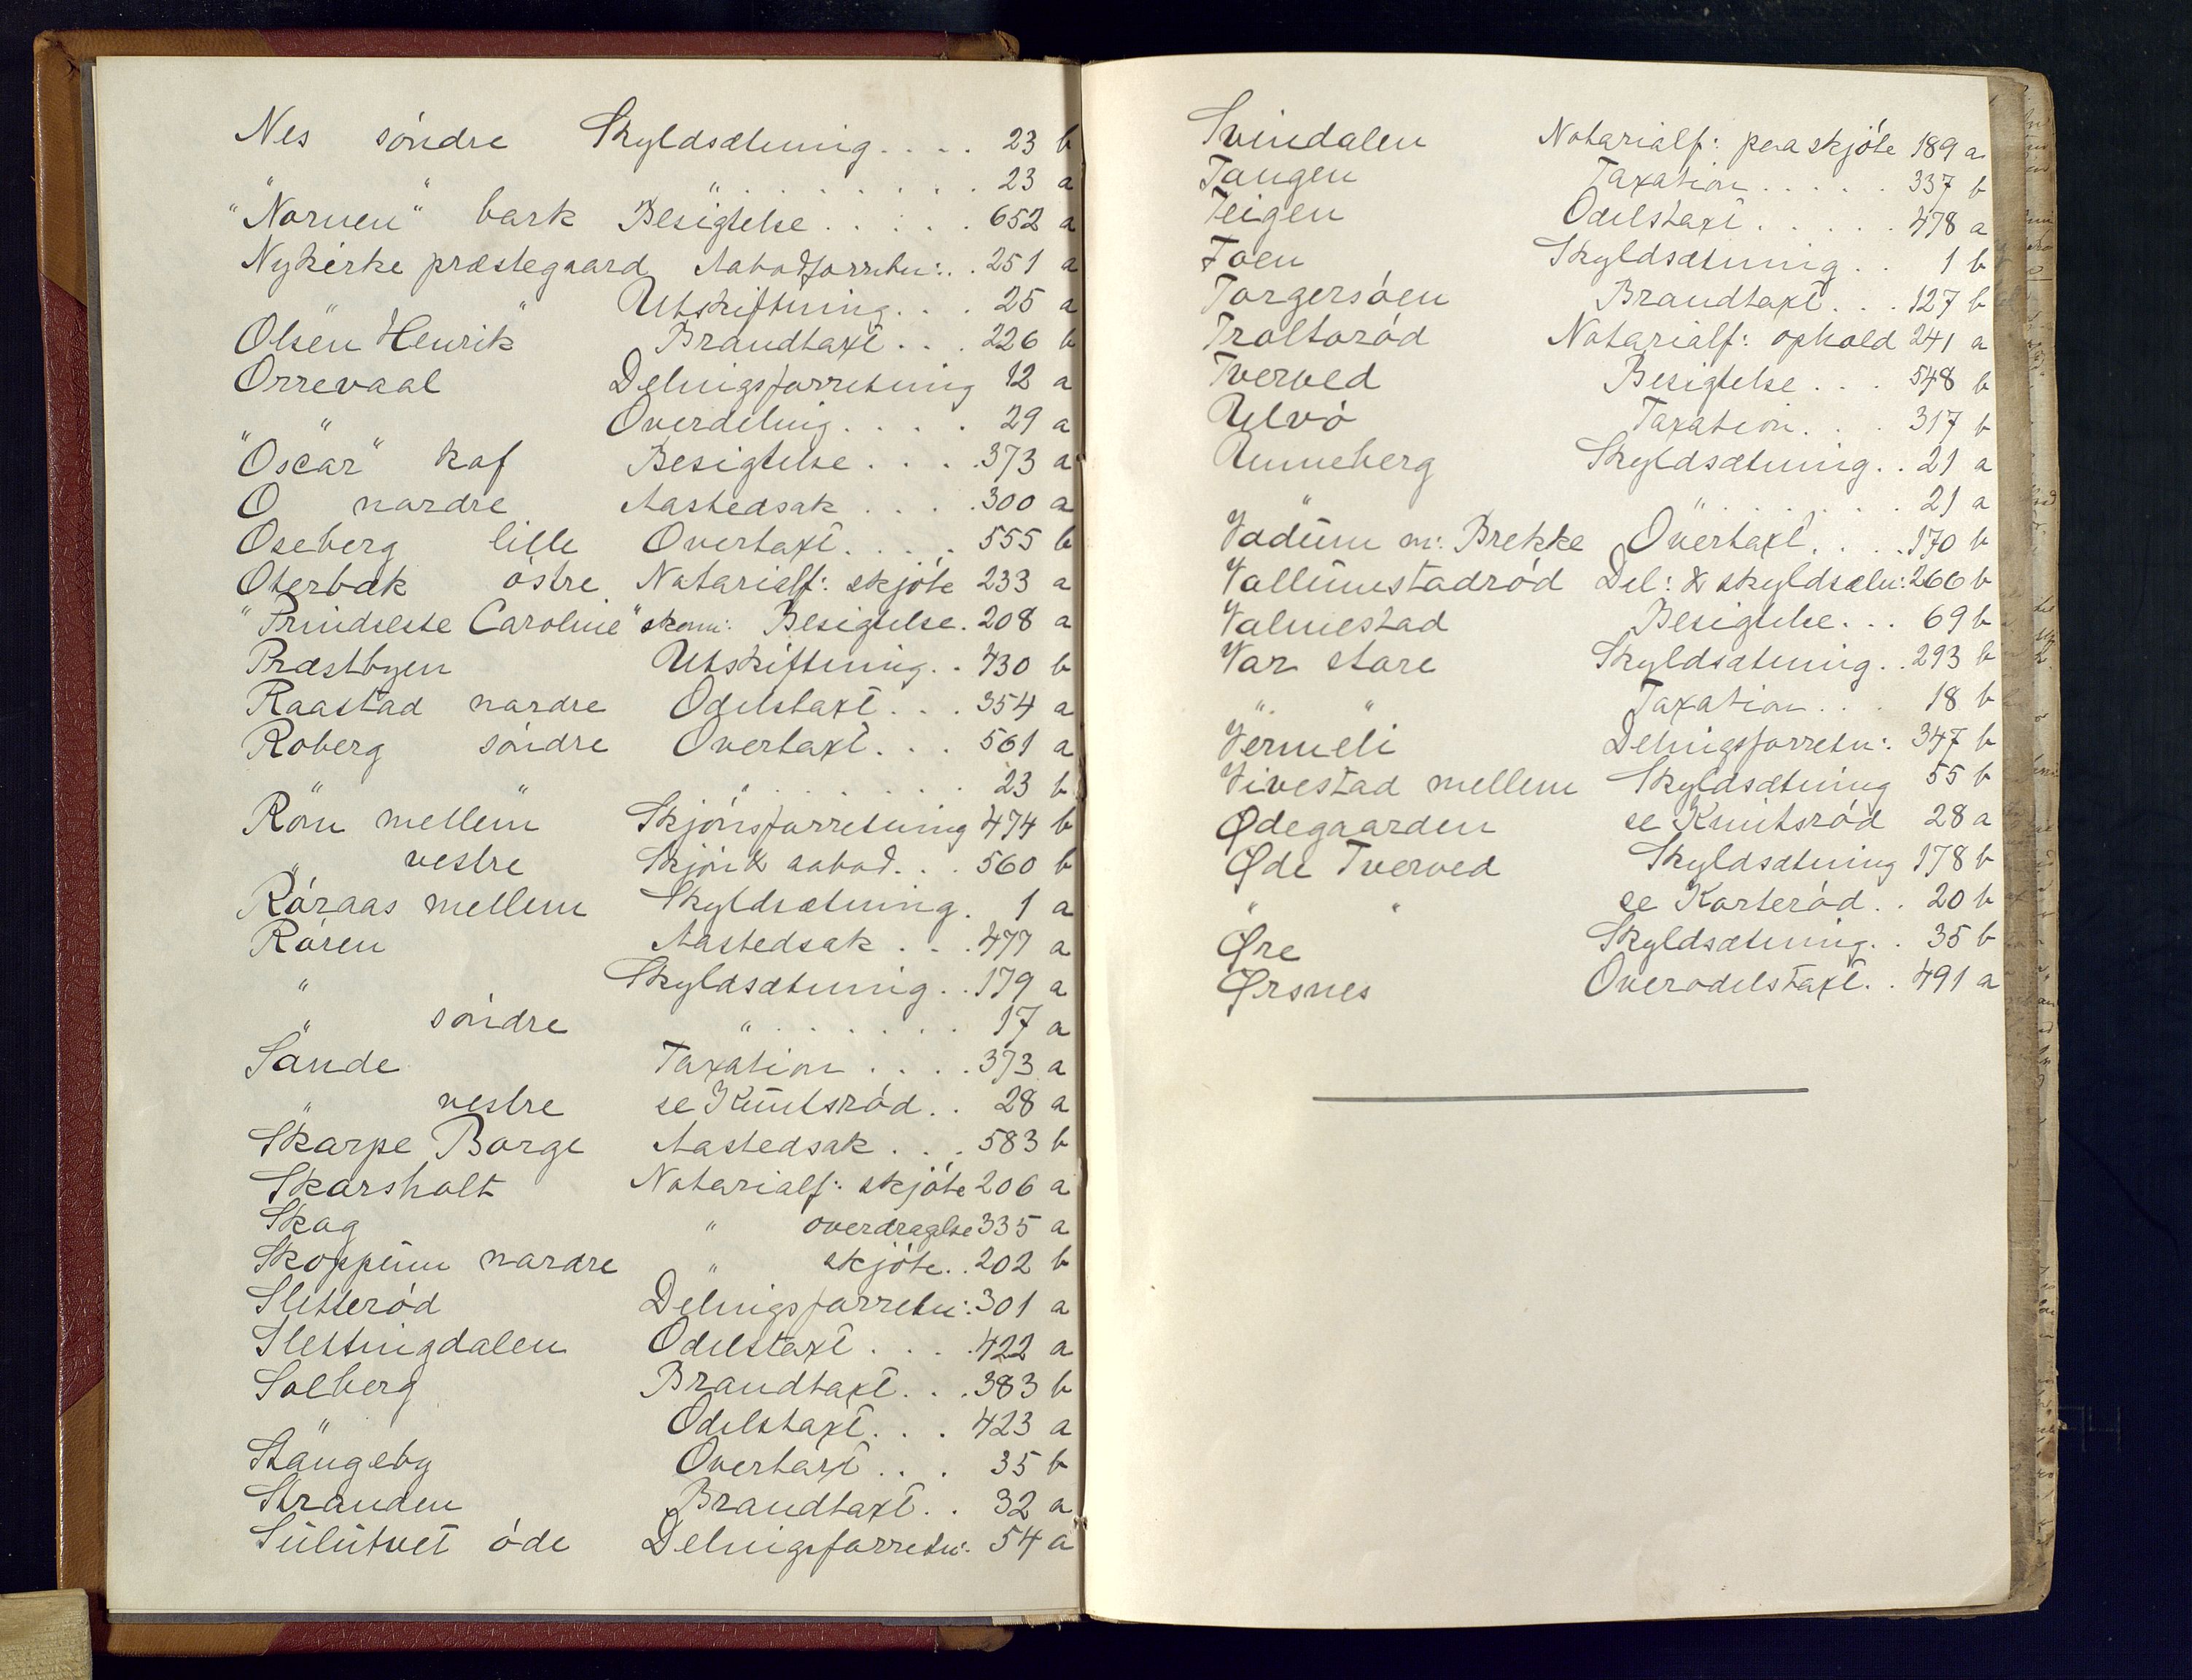 Nes söndre Skyldsætning.... 23 b
" " " ......... 23 a
"Nornen" bark Besigtelse..... 652 a
Nykirke præstegaard Aabodforretn:.. 251 a
" " Utskiftning... 25 a
Olsen Henrik Brandtaxt... 226 b
Orrevaal Delingsforretning 12 a
" " Overdeling.... 29 a
"Oscar" kof Besigtelse.... 373 a
O nordre Aastedsak.... 300 a
Oseberg lille Overtaxt.... 555 b
Oterbæk östre Notarialf: skjöte 233 a
"Prindsesse Caroline" skonn: Besigtelse. 208 a
Præstbyen Utskiftning.. 430 b
Raastad nordre Odelstaxt... 354 a
Roberg söndre Overtaxt... 561 a
" " " ....... 23 b
Röm mellem Skjönsforretning 474 b
" vestre Skjön & aabod... 560 b
Röraas mellem Skyldsætning. 1 a
Rören Aastedsak... 477 a
" Skyldsætning.. 179 a
" söndre " ....... 17 a
Sande Taxation.... 373 a
" vestre se Knutsröd.. 28 a
Skarpe Borge Aastedsak... 583 b
Skarsholt Notarialf: skjöte 206 a
Skog " overdragelse 335 a
Skoppum nordre " skjöte.. 202 b
Sletteröd Delingsforretn:. 301 a
Slettingdalen Odelstaxt.... 422 a
Solberg Brandtaxt... 383 b
" Odelstaxt... 423 a
Stangeby Overtaxt... 35 b
Stranden Brandtaxt.. 32 a
Sulutvet öde Delingsforretn:. 54 a
Svindalen Notarialf: paa skjöte 189 a
Tangen Taxation..... 337 b
Teigen Odelstaxt..... 478 a
Toen Skyldsætning.. 1 b
Torgersöen Brandtaxt... 127 b
Troltoröd Notarialf: ophold 241 a
Tverved Besigtelse... 548 b
Ulvö Taxation... 317 b
Unneberg Skyldsætning.. 21 a
" " ....... 21 a
Vadum m: Brekke Overtaxt.... 170 b
Vallumstadröd Del: & skyldsætn: 266 b
Valmestad Besigtelse... 69 b
Var store Skyldsætning.. 293 b
" " Taxation... 18 b
Vermeli Delingsforretn:. 347 b
Vivestad mellem Skyldsætning 55 b
Ødegaarden se Knutsröd 28 a
Øde Tverved Skyldsætning 178 b
" " se Korteröd.. 20 b
Øre Skyldsætning.. 35 b
Ørsnes Overodelstaxt.. 491 a